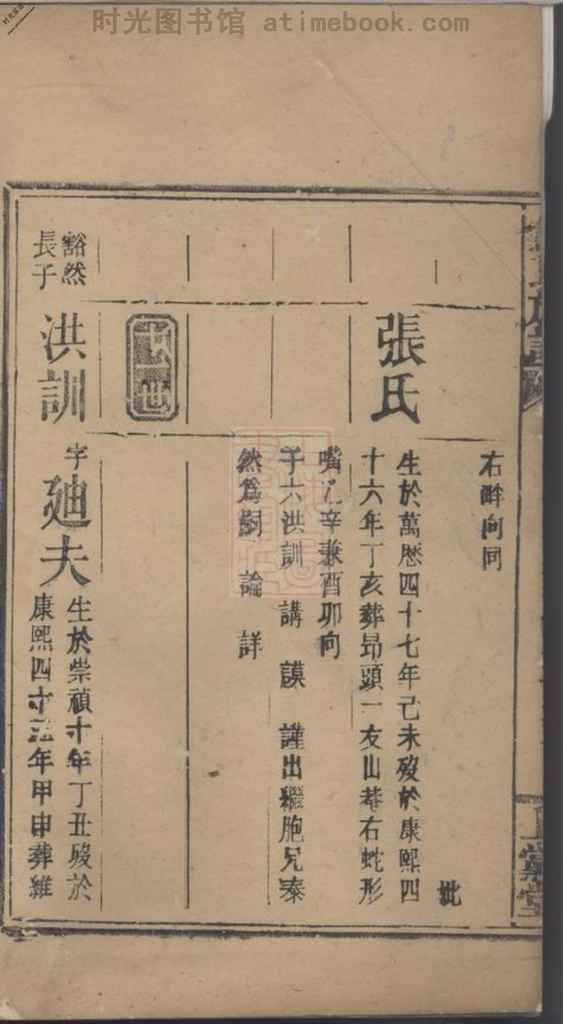 时光图书馆 atimebook.com
右畔向同
張氏
生於萬歷四十七年己未歿於康熙四
十六年丁亥葬昂頭一友山巷右蛇形
嘴乙辛兼酉卯向
子六洪訓 講 謨 謹出繼胞兄泰
然爲嗣 論 詳
豁然
長子
洪訓
字廸夫
生於崇禎十年丁丑歿於
康熙四十三年甲申葬維